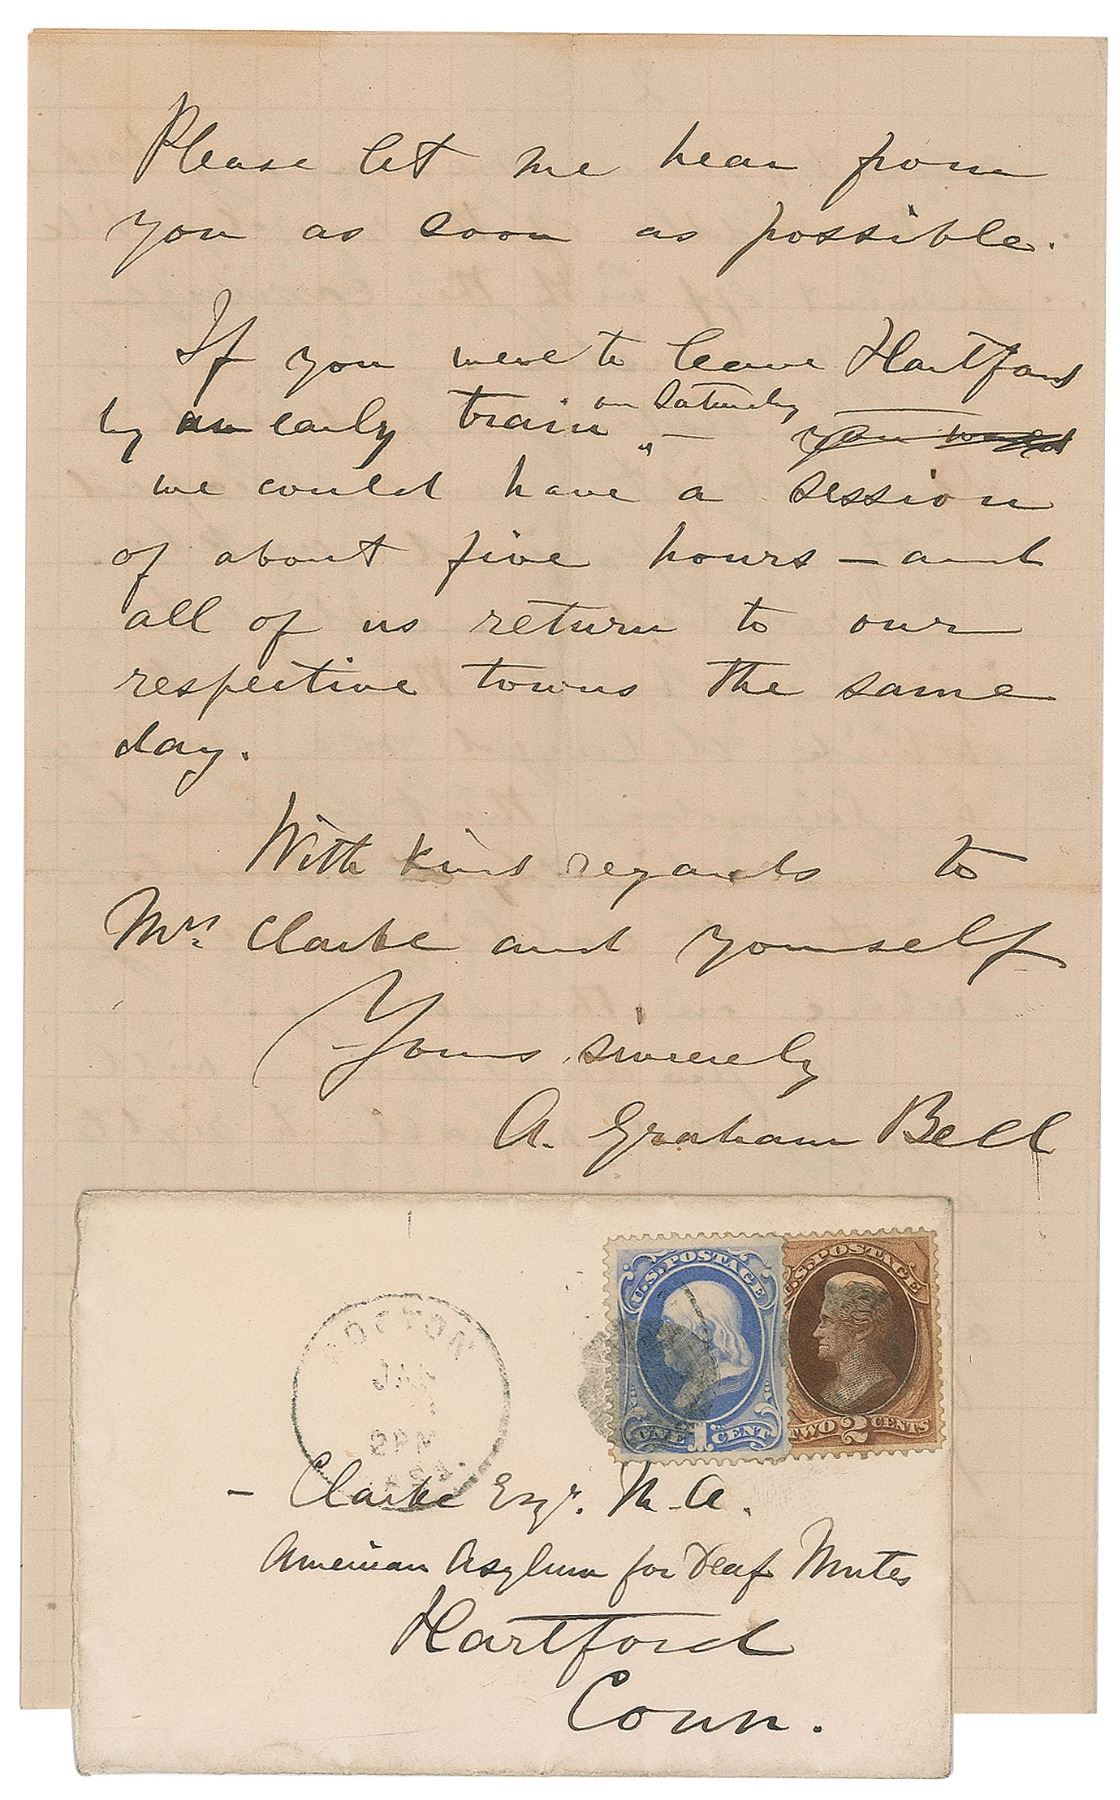 Please let me hear from
you as soon as possible.
If you were to leave Hartford
by an early train on Saturday —
we could have a session
of about five hours — and
all of us return to our
respective towns the same
day.
With kind regards to
Mrs. Clarke and yourself
Yours sincerely
A. Graham Bell
U.S. POSTAGE
ONE 1 CENT
U.S. POSTAGE
TWO 2 CENTS
BOSTON
— Clarke Esqr. M.A.
American Asylum for Deaf Mutes
Hartford
Conn.